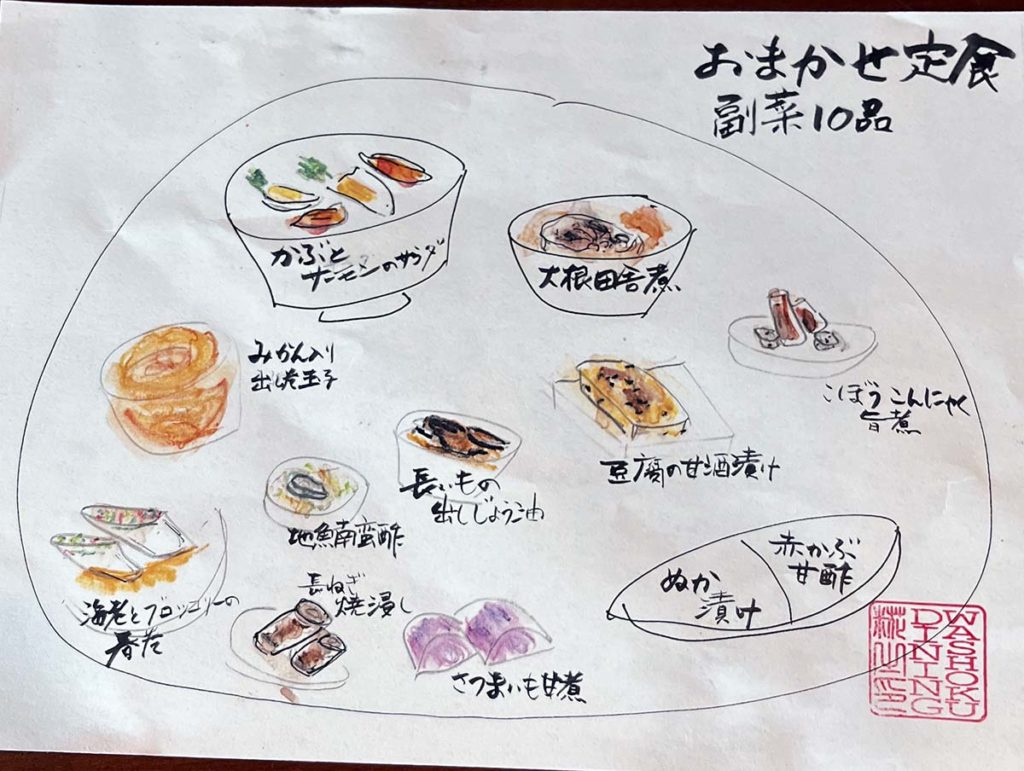 おまかせ定食
副菜10品
かぶと
サーモンのサラダ
大根田舎煮
みかん入り
出し巻玉子
ごぼうこんにゃく
旨煮
豆腐の甘酒漬け
長いもの
出しじょう油
地魚南蛮酢
海老とブロッコリーの
春巻
長ねぎ
焼浸し
さつまいも甘煮
ぬか
漬け
赤かぶ
甘酢
WASHOKU
DINING